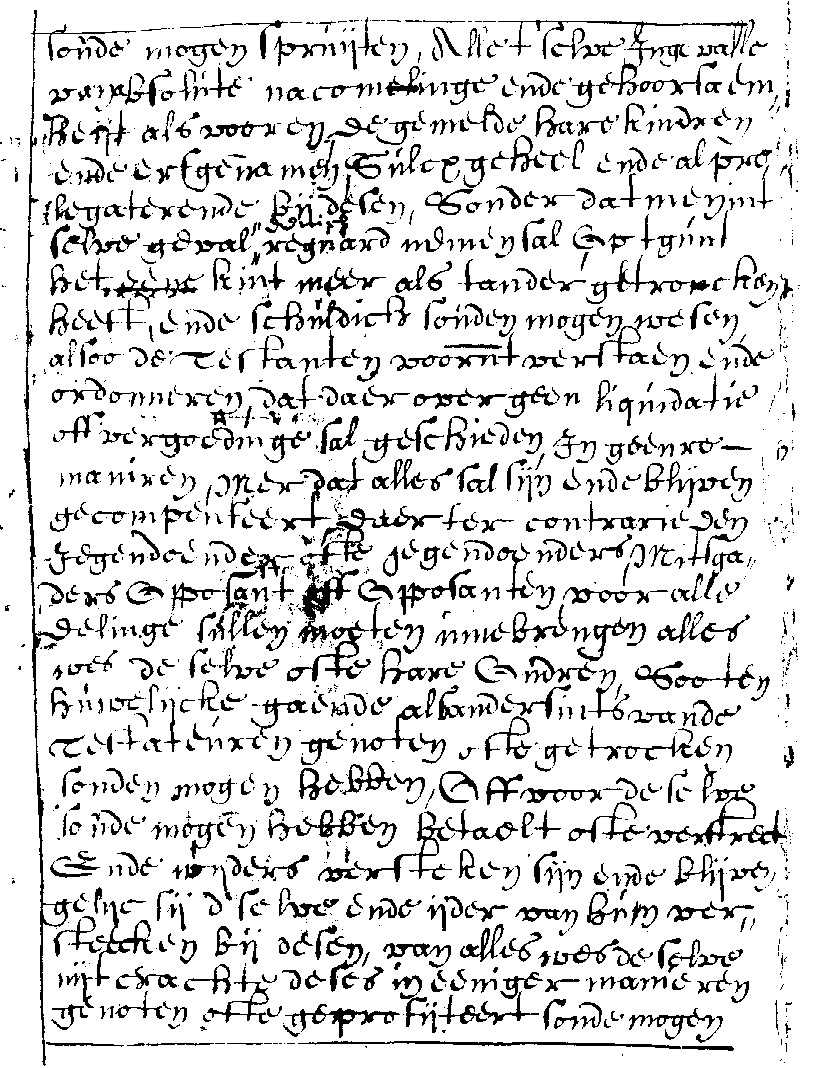 soude mogen spruijten, Alle t selve Inge valle
van absolute nacomelinge ende gehoorsaem„
heijt als vooren, de gemelde hare kindren
ende erfgenamen, Sulcx geheel ende al pre„
legaterende bij desen, Sonder datmen int
selve geval eenich reguard nemen sal Op tgunt
het eene kint meer als tander getroucken
heeft, ende schuldich souden mogen wesen
alsoo de Testanten voornt verstaen ende
ordonneren, dat daer over geen liquidatie
off vergoedinge sal geschieden, In geenre
maniren, Mer dat alles sal sijn ende blijven
gecompenseert, daer ter contrarie den
Jegendoender ofte jegendoenders, Mitsga„
ders Opposant off Opposanten voor alle
delinge sullen moeten innebrengen alles
wes de selve ofte hare Oudren, Soo ten
huwelijcke gaende als andersints vande
Testateuren genoten ofte getrocken
souden mogen hebben, Off voor de selve
soude mogen hebben betaelt ofte verstrect
Ende wijders versteken sijn ende blijven
gelijc sij d selve ende ijder van hun ver„
steecken bij desen, van alles wes de selve
uijt crachte deses in eeniger manieren
genoten ofte geprofijteert soude mogen